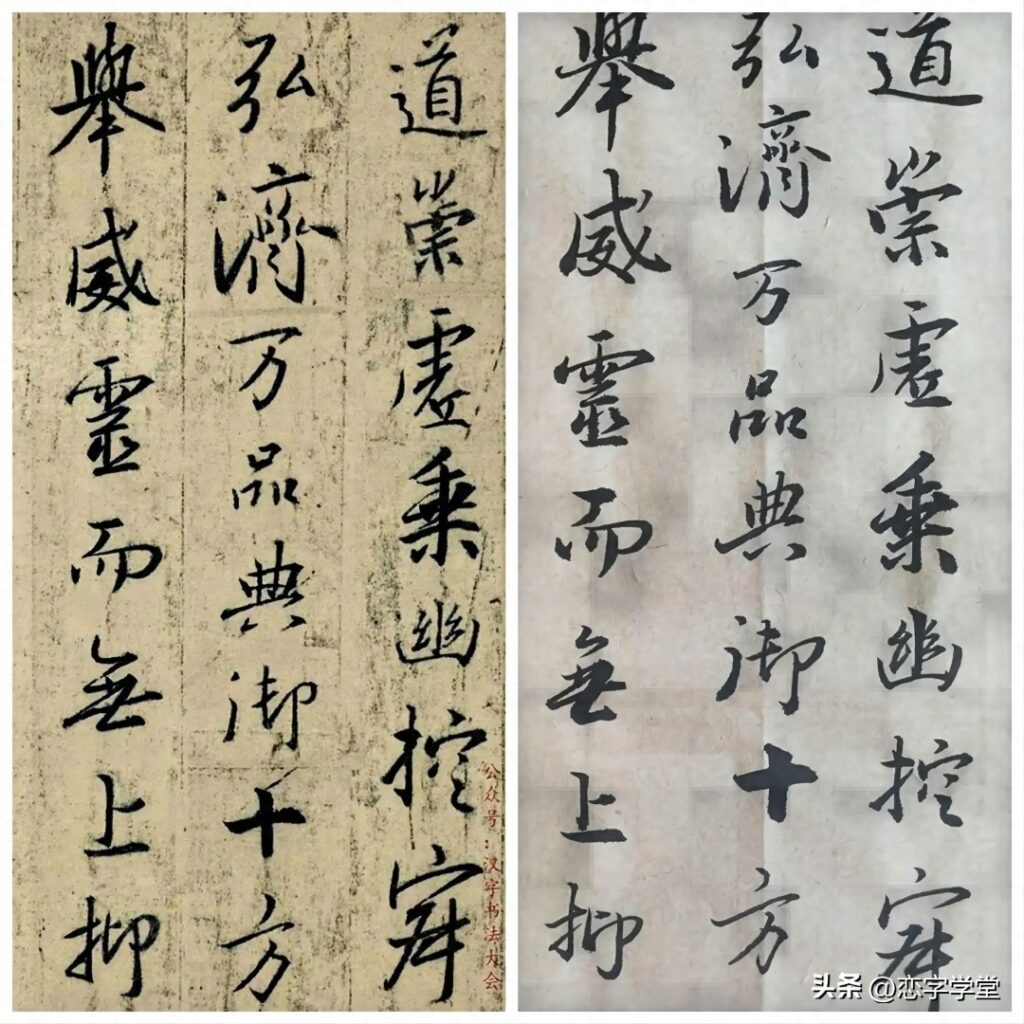 道崇虛乘幽控寂
弘濟万品典御十方
舉威靈而無上抑
公众号:汉字书法大会
道崇虛乘幽控寂
弘濟万品典御十方
舉威靈而無上抑
头条 @恋字学堂